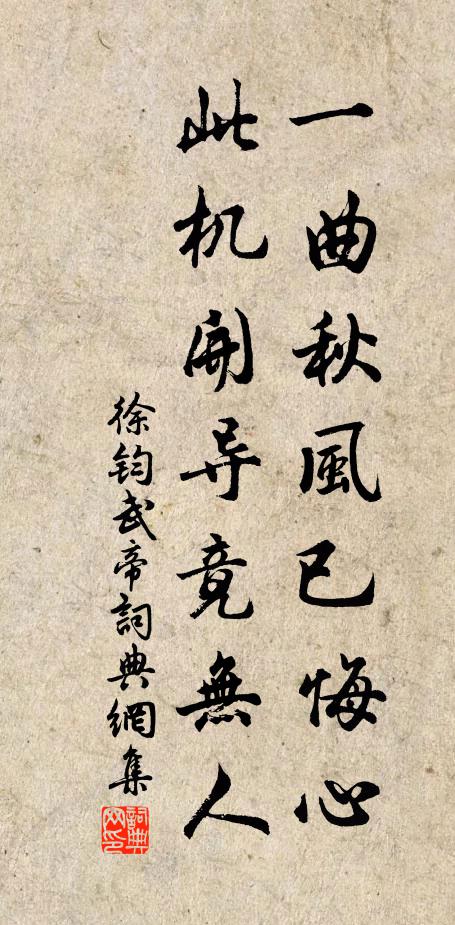 一曲秋風已悔心
此机開导竟無人
徐钧武帝詞典網集
詞典网印